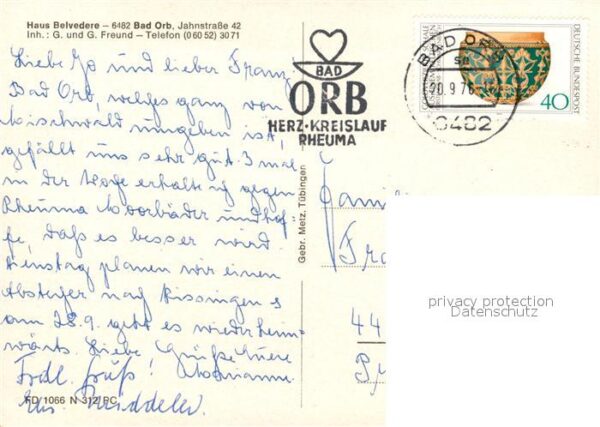 Haus Belvedere – 6482 Bad Orb, Jahnstraße 42
Inh.: G. und G. Freund – Telefon (0 60 52) 30 71
Liebe Jo und lieber Franz,
Bad Orb, welches ganz von
Mischwald umgeben ist,
gefällt uns sehr gut. 3 mal
in der Woche erhalte ich gegen
Rheuma Moorbäder und hof-
fe, daß es besser wird.
Dienstag planen wir einen
Abstecher nach Kissingen u
am 28.9. geht es wieder heim-
wärts. Liebe Grüße Euere
Frdl. Gruß!
FD 1066 N 312/PC
Gebr. Metz, Tübingen
BAD
ORB
HERZ·KREISLAUF
RHEUMA
BAD ORB
20.9.76
6482
DEUTSCHE BUNDESPOST
40
Fami
Fra
44
privacy protection
Datenschutz